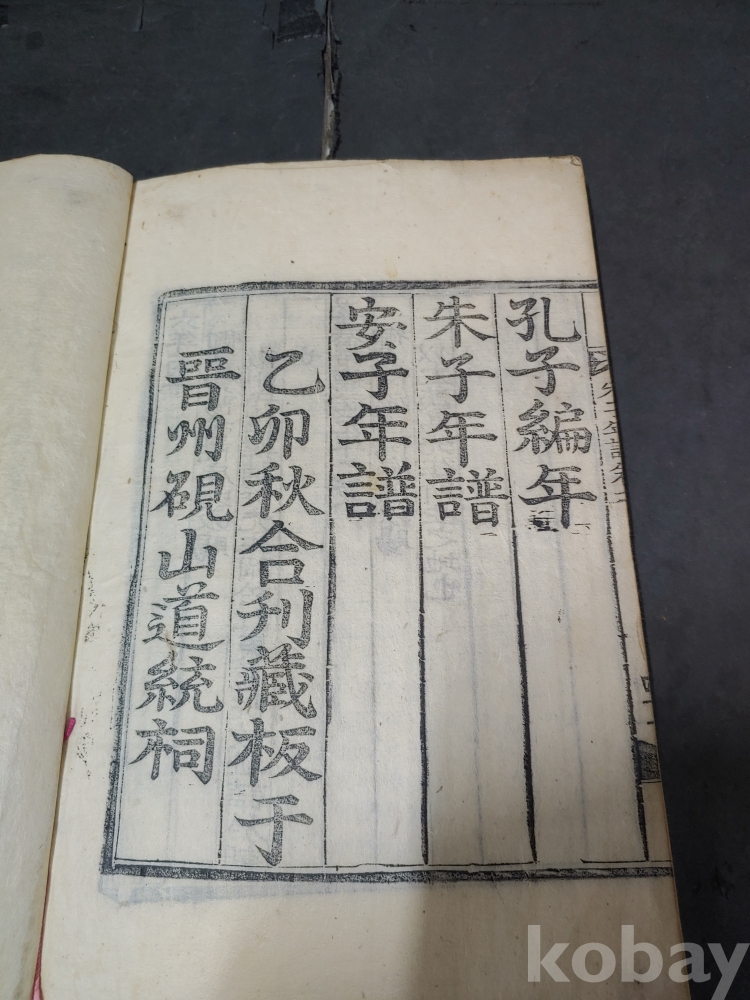 孔子編年
朱子年譜
安子年譜
乙卯秋合刊藏板于
晋州硯山道統祠
kobay